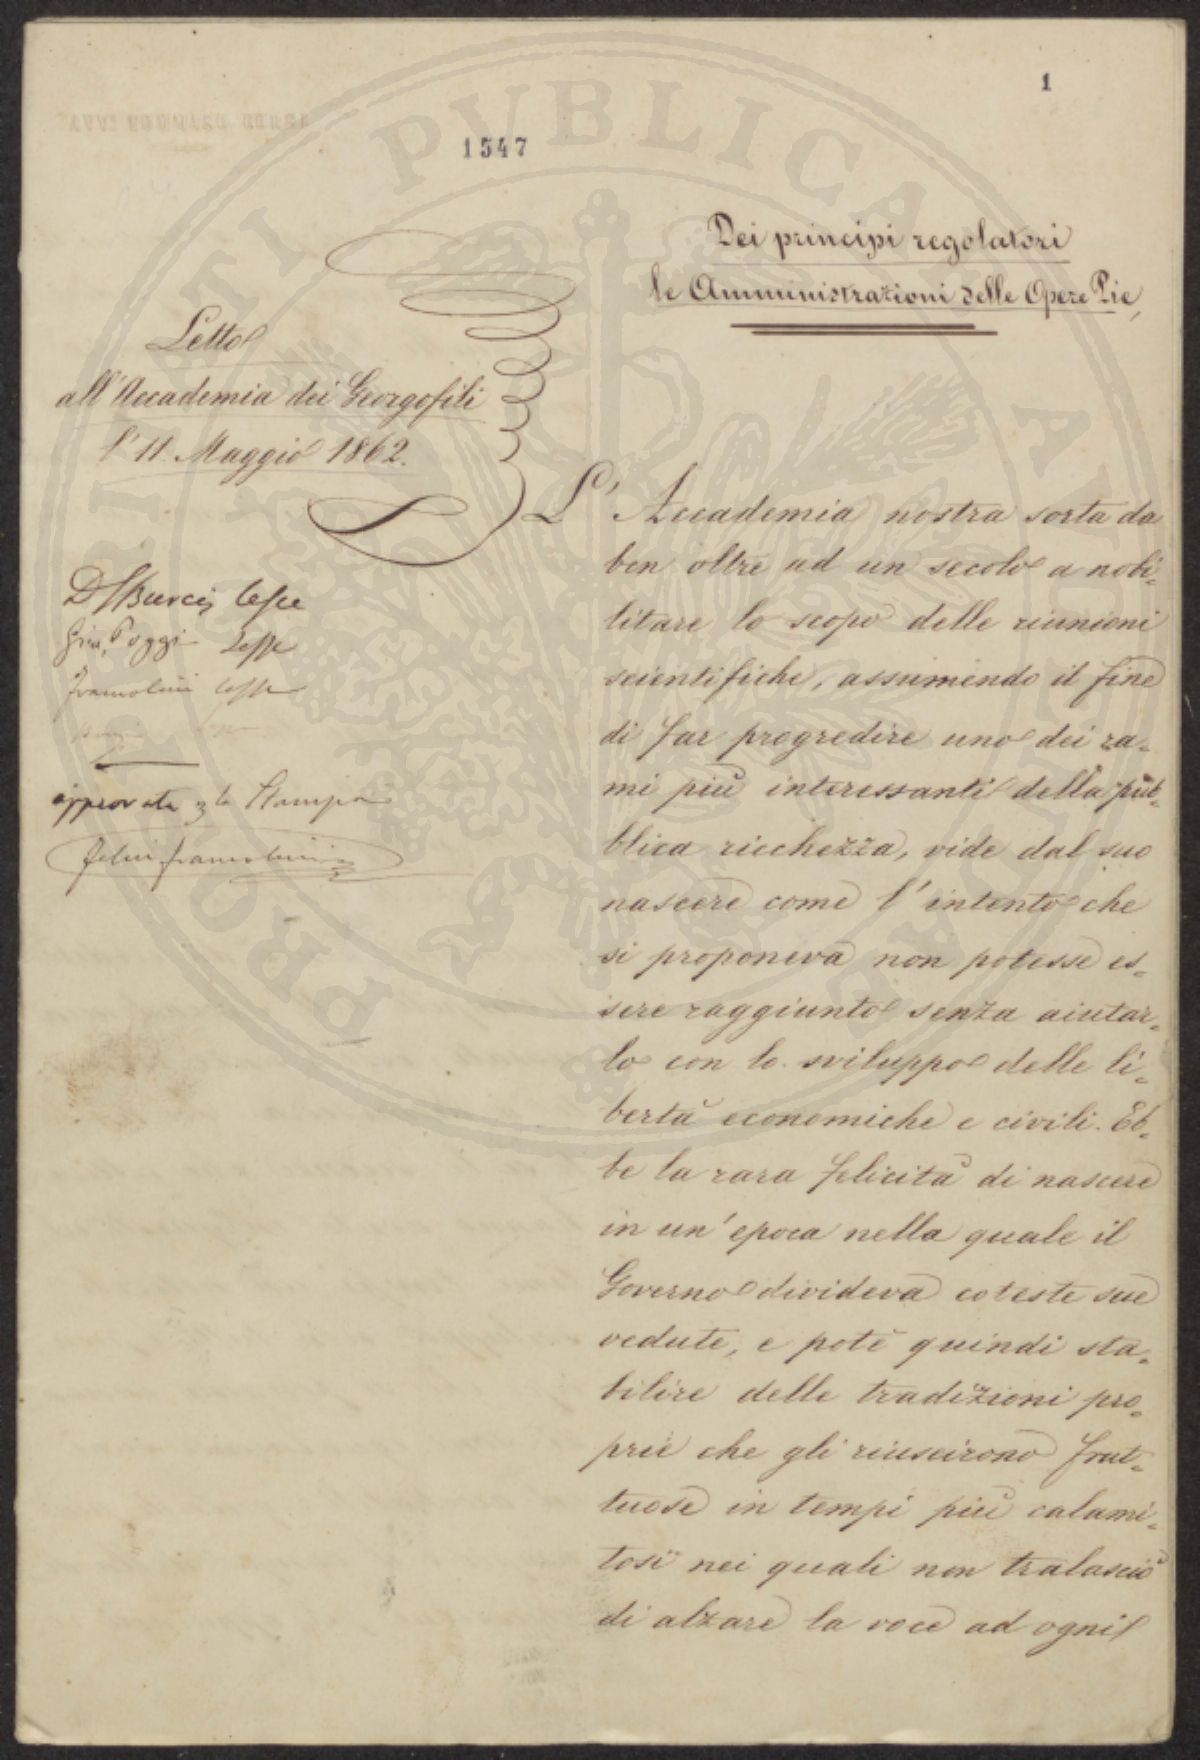 1
1547
Dei principi regolatori
le Amministrazioni delle Opere Pie,
Letto
all'Accademia dei Georgofili
l'11. Maggio 1862.
D. Burci, lesse
Gius. Poggi lesse
Francolini lesse
approvata la Stampa
Felice Francolini
L'Accademia nostra sorta da
ben oltre ad un secolo a nobi-
litare lo scopo delle riunioni
scientifiche, assumendo il fine
di far progredire uno dei ra-
mi più interessanti della pub-
blica ricchezza, vide dal suo
nascere come l'intento che
si proponeva non potesse es-
sere raggiunto senza aiutar-
lo con lo sviluppo delle li-
bertà economiche e civili. Eb-
be la rara felicità di nascere
in un'epoca nella quale il
Governo divideva coteste sue
vedute, e potè quindi sta-
bilire delle tradizioni pro-
prie che gli riuscirono frut-
tuose in tempi più calami-
tosi nei quali non tralasciò
di alzare la voce ad ogni